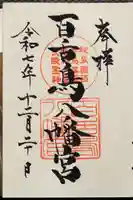 奉拝
百舌鳥八幡宮
令和七年十二月二十日